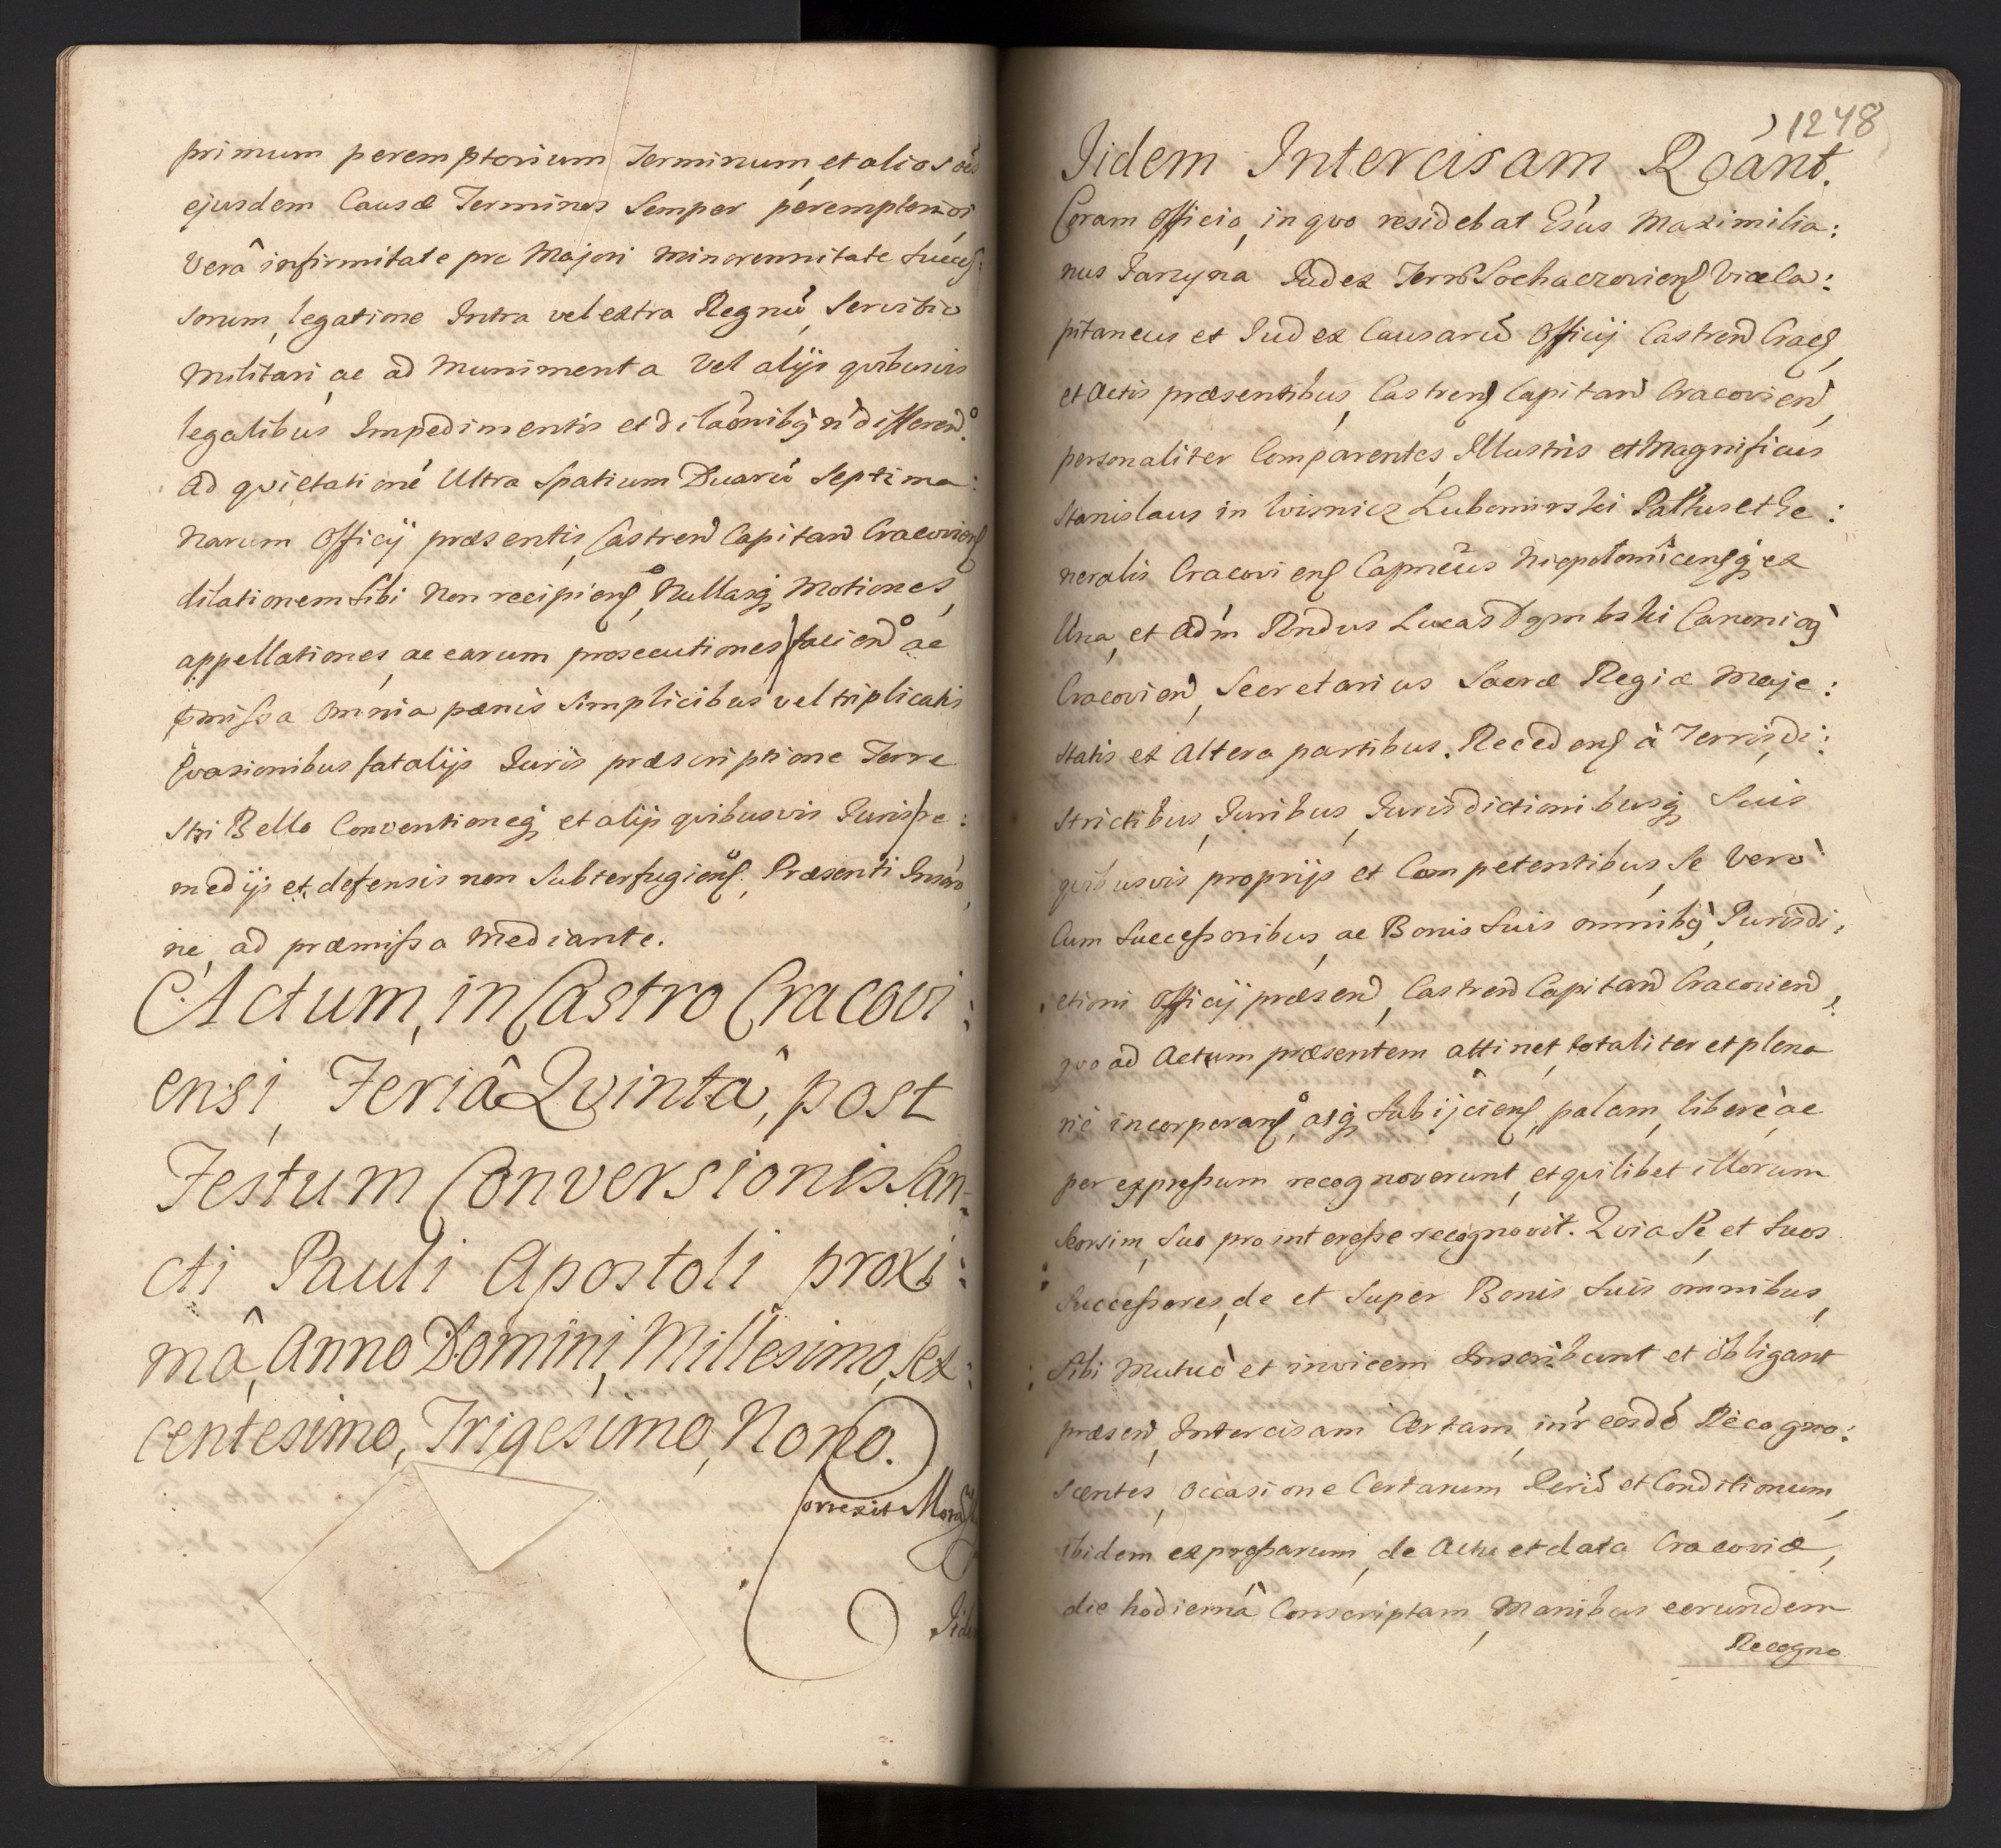 primum peremptorium Terminum, et alios oēs
ejusdem Causæ Terminos Semper peremptorios
Verâ infirmitate pro Majori minorennitate Succes:
sorum, legatione Intra vel extra Regnū, Servitio
Militari, ac ad Munimenta Vel alijs qvibusvis
legalibus Impedimentis et dilaōnibꝗ n̄ differend.
ad qvietationē Ultra Spatium Duarū Septima:
narum Officij præsentis, Castren Capitan Cracovien
dilationem Sibi Non recipien, Nullasꝗ Motiones,
appellationes, ac earum prosecutiones faciend ac
p̄missa omnia pænis Simplicibus vel triplicatis
Evasionibus fatalijs Juris præscriptione Terre
stri Bello Conventioneꝗ et alijs qvibusvis Juris re:
medijs et defensis non Subterfugien, Præsenti Inscrō
ne, ad præmissa Mediante.
Actum, in Castro Cracovi:
ensi, Feriâ Qvintâ, post
Festum Conversionis San:
cti Pauli Apostoli proxi:
mâ, Anno Domini, Millesimo, Sex:
centesimo, Trigesimo, Nono.
Correxit
Iidem
1248
Iidem Intercisam Rōānt.
Coram Officio, in qvo residebat Gsūs Maximilia:
nus Jarzyna Judex Terrs Sochaczovien Viceca:
pitaneus et Judex Causarū Officij Castren Crac,
et Actis præsentibus, Castren Capitan Cracovien,
personaliter Comparentes, Illustris et Magnificus
Stanislaus in Wisnicz Lubomirski Pāltūs et Ge:
neralis Cracovien Capnēus Niepolomicenꝗ ex
Una, et Adm Rndus Lucas Dąmbski Canonicꝗ
Cracovien, Secretarius Sacræ Regiæ Maje:
statis ex Altera partibus. Receden à Terris, di:
strictibus, Juribus, Jurisdictionibusꝗ Suis
qvibusvis proprijs et Competentibus, Se Verò
Cum Successoribus, ac Bonis Suis omnibꝗ, Jurisdi:
ctioni Officij præsen, Castren Capitan Cracovien,
qvo ad Actum præsentem attinet, totaliter et plena
riè incorporan, atꝗ Subijcien, palam, liberè ac
per expressum recognoverunt, et qvilibet illorum
seorsim, Suo pro interesse recognovit. Qvia Se, et Suos
Successores, de et Super Bonis Suis omnibus,
Sibi Mutuò et invicem Inscribunt et obligant
præsen, Intercisam Certam, intr eosdē Recogno:
scentes, occasione Certarum Rerū et Conditionum,
ibidem expressarum, de Actu et data Cracoviæ,
die hodiernâ Conscriptam, Manibus eorundem
Recogno